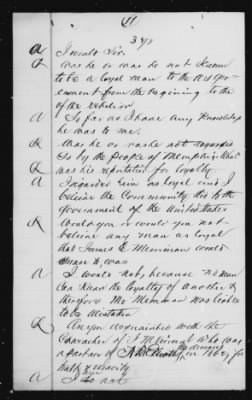 11
348
A I could Sir.
Q Was he or was he not known
to be a loyal man to the U.S. Gov
ernment from the beginning to the
of the rebelion
A So far as I have any knowledge
he was to me.
Q Was he or was he not regarded
as by the people of Memphis that
was his reputation for loyalty.
A I regarded him as loyal and I
believe the Community did by the
government of the United States
Q Could you or would you not
believe any man as loyal
that James E. Merriman would
swear to, was
A I would not, because no man
can know the loyalty of another &
therefore Mr Merriman was liable
to be mistaken
Q Are you acquainted with the
character of J. Merriman who was
a partner of deceased in 1862, for
truth & veracity
A I am not